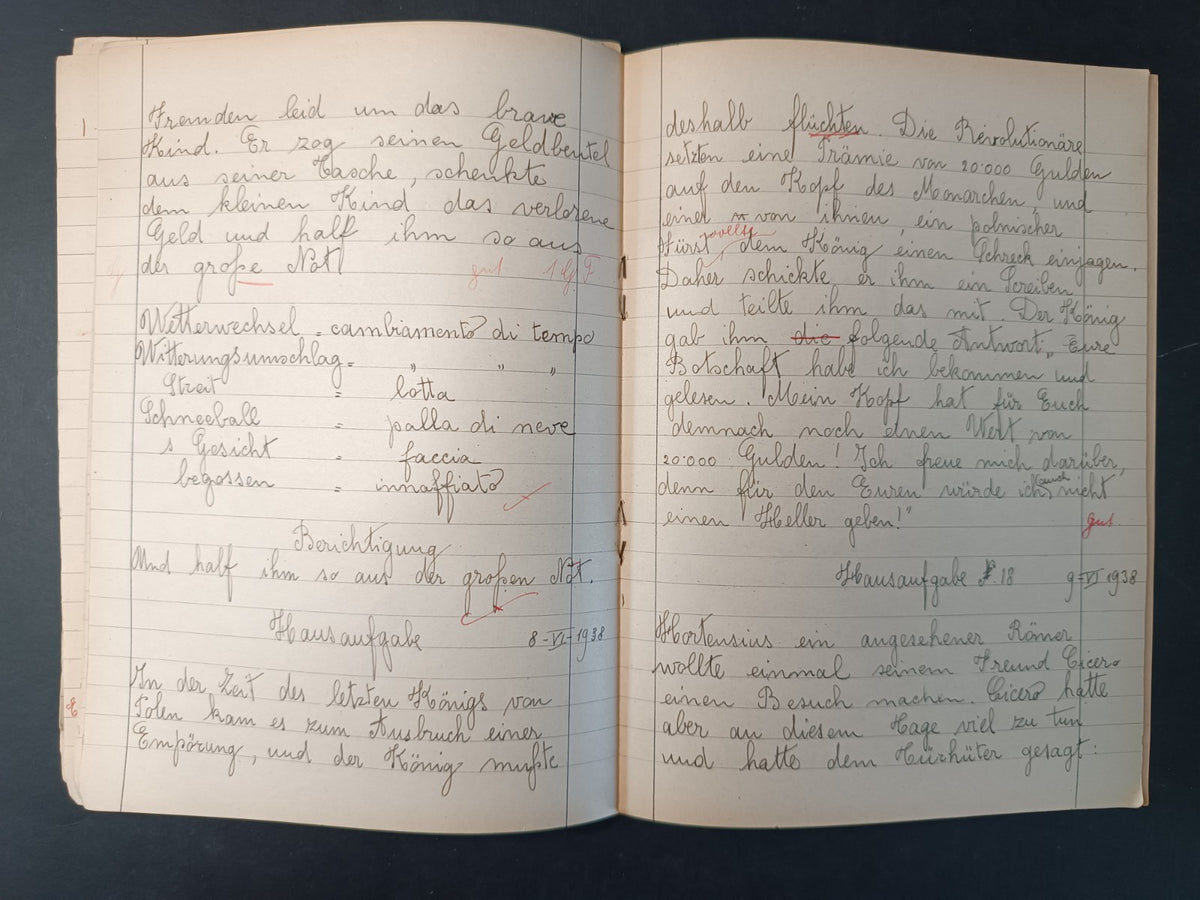 Fremden leid um das brave
Kind. Er zog seinen Geldbeutel
aus seiner Tasche, schenkte
dem kleinen Kind das verlorene
Geld und half ihm so aus
der große Not!
gut 1 g F
Wetterwechsel = cambiamento di tempo
Witterungsumschlag = " " "
Streit = lotta
Schneeball = palla di neve
s Gesicht = faccia
begossen = innaffiato
Berichtigung
Und half ihm so aus der großen Not.
Hausaufgabe 8-VI-1938
In der Zeit des letzten Königs von
Polen kam es zum Ausbruch einer
Empörung, und der König mußte
deshalb flüchten. Die Revolutionäre
setzten eine Prämie von 20.000 Gulden
auf den Kopf des Monarchen, und
einer von ihnen, ein polnischer
Fürst wollte dem König einen Schreck einjagen.
Daher schickte er ihm ein Screiben
und teilte ihm das mit. Der König
gab ihm die folgende Antwort: „Eure
Botschaft habe ich bekommen und
gelesen. Mein Kopf hat für Euch
demnach noch einen Wert von
20.000 Gulden! Ich freue mich darüber,
denn für den Euren würde ich auch nicht
einen Heller geben!"
gut
Hausaufgabe N. 18 9-VI 1938
Hortensius ein angesehener Römer
wollte einmal seinem Freund Cicero
einen Besuch machen. Cicero hatte
aber an diesem Tage viel zu tun
und hatte dem Türhüter gesagt: